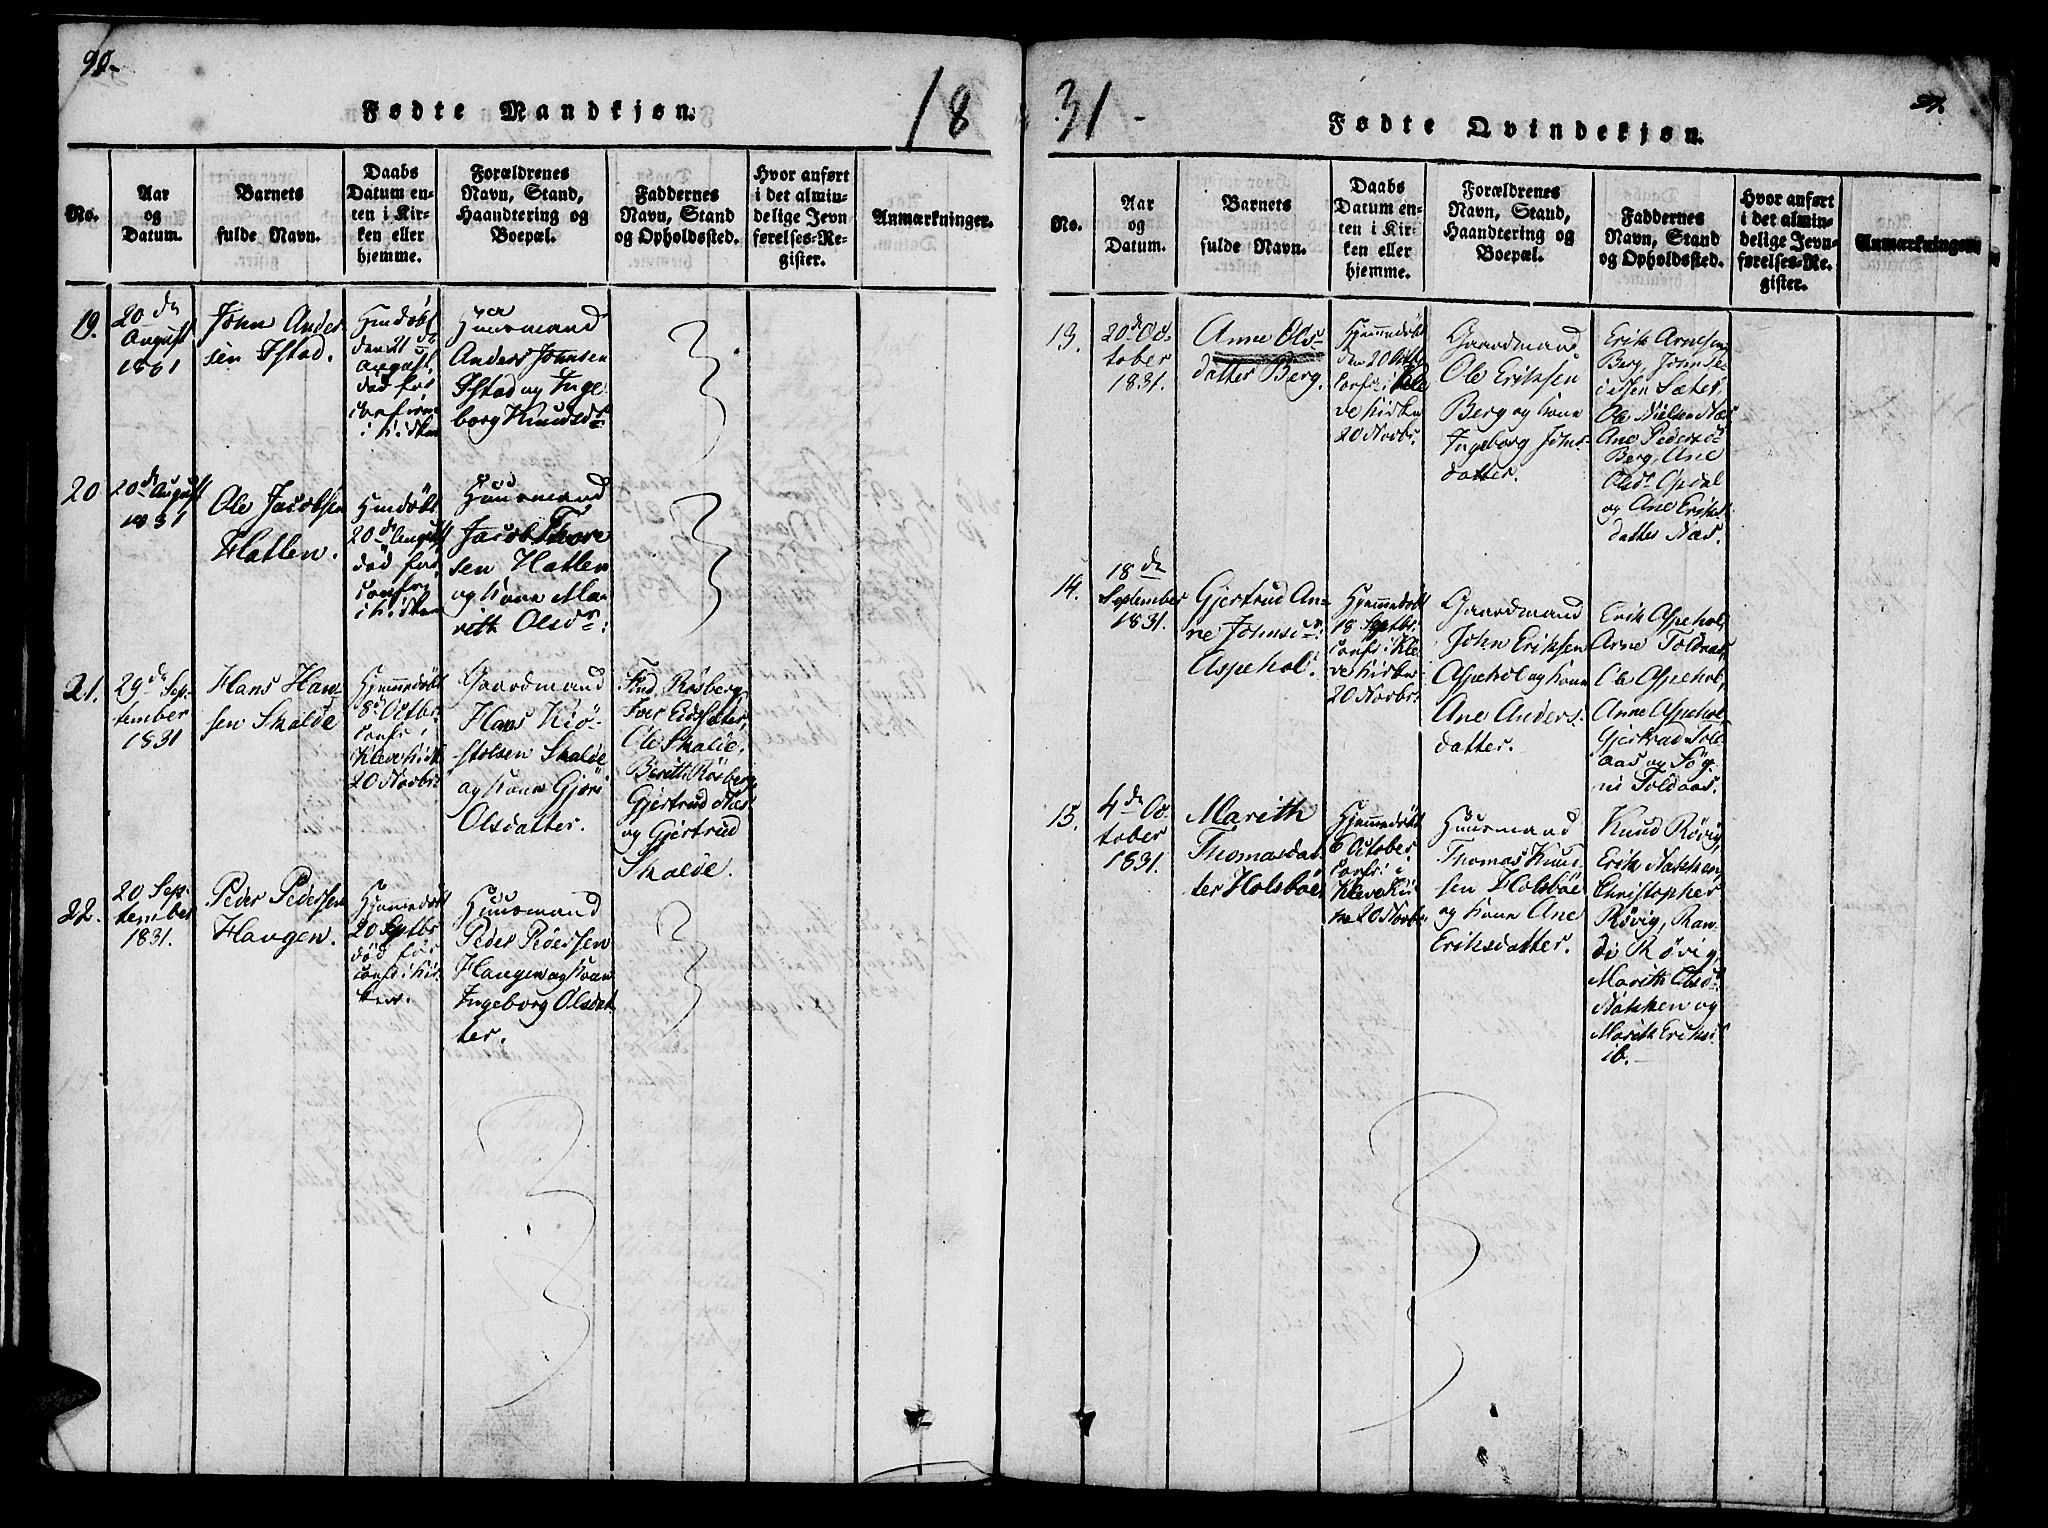 90.
Fødte Mandkjøn.
18
No.
Aar
og
Datum.
Barnets
fulde Navn.
Daabs
Datum en-
ten i Kir-
ken eller
hjemme.
Forældrenes
Navn, Stand,
Haandtering og
Boepæl.
Faddernes
Navn, Stand
og Opholdssted.
Hvor anført
i det almin-
delige Jevn
førelses-Re-
gister.
Anmærkninger.
19.
20 de
August
1831
John Ander
sen Istad.
den 21 de
August,
død før
i Kirken
Huusmand
Anders Johnsen
Istad og Inge
borg Knudsdr
20
20de August
1831
Ole Jacobsen
Hatlen.
20de August
død før
i Kirken
Huusmand
Jacob Thore
sen Hatlen
og Kone Ma-
rith Olsdr:
21.
29de Sep-
tember
1831
Hans Han-
sen Skalde
Hjemmedøbt
8de Octbr:
confr: i
Kleve Kirk
20 Novbr:
Gaardmand
Hans Kiø-
stolsen Skalde
og Kone Gjøri
Olsdatter.
Knud Røsberg
Iver Eidssæter,
Ole Skalde,
Berith Røsberg
Gjertrud Næs
og Gjertrud
Skalde.
22.
20 Sep-
tember
1831.
Peder Pedersen
Haugen.
Hjemmedøbt
20 Septbr
død før
confr: i Kir-
ken.
Huusmand
Peder Pedersen
Haugen og Kone
Ingeborg Olsdat
ter.
31
Fødte Qvindekjøn.
91.
No.
Aar
og
Datum.
Barnets
fulde Navn.
Daabs
Datum en-
ten i Kir-
ken eller
hjemme.
Forældrenes
Navn, Stand,
Haandtering og
Boepæl.
Faddernes
Navn, Stand
og Opholdssted.
Hvor anført
i det almin-
delige Jevn-
førelses-Re-
gister.
Anmærkninger
13.
20de Oc-
tober
1831.
Anne Ols-
datter Berg.
Hjemmedøbt
den 20 Octbr
confr: i Kle
ve Kirken
20 Novbr:
Gaardmand
Ole Eriksen
Berg og Kone
Ingeborg Johns-
datter.
Erik Arnesen
Berg, John
Sæter,
Ole Nielsen Næs
Ane Pedersdr
Berg, Ane
Olsdr Opdal
og Ane Eriks
datter Næs.
14.
18 de
September
1831.
Gjertrud An-
ne Johnsdr:
Aspehol.
Hjemmedøbt
18 Septbr:
confr: i Kle
ve Kirken
20 Novbr:
Gaardmand
John Eriksen
Aspehol og Kone
Ane Anders-
datter.
Erik Aspehol,
Arne Toldnæs,
Ole Aspehol,
Anne Aspehol,
Gjertrud Told-
aas og Søg-
ni Toldaas.
15.
4 de Oc-
tober
1831.
Marith
Thomasdat-
ter Holsbøe
Hjemmedøbt
6 October
confr: i
Kleve Kir
ke 20 Novbr
Huusmand
Thomas Knud
sen Holsbøe
og Kone Ane
Eriksdatter.
Knud Røvig,
Erik Nakken,
Christopher
Røvig, Ran-
di Røvig,
Marith Olsdr
Nakken og
Marith Eriksdr
ib.